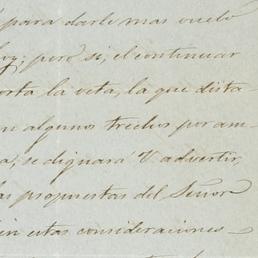 para darle mas vuelo
hoy; pero si, el continuar
orta la veta, la que dista-
n algunos trechos por am-
a, se dignará V. advertir,
las propuestas del Señor
in estas consideraciones